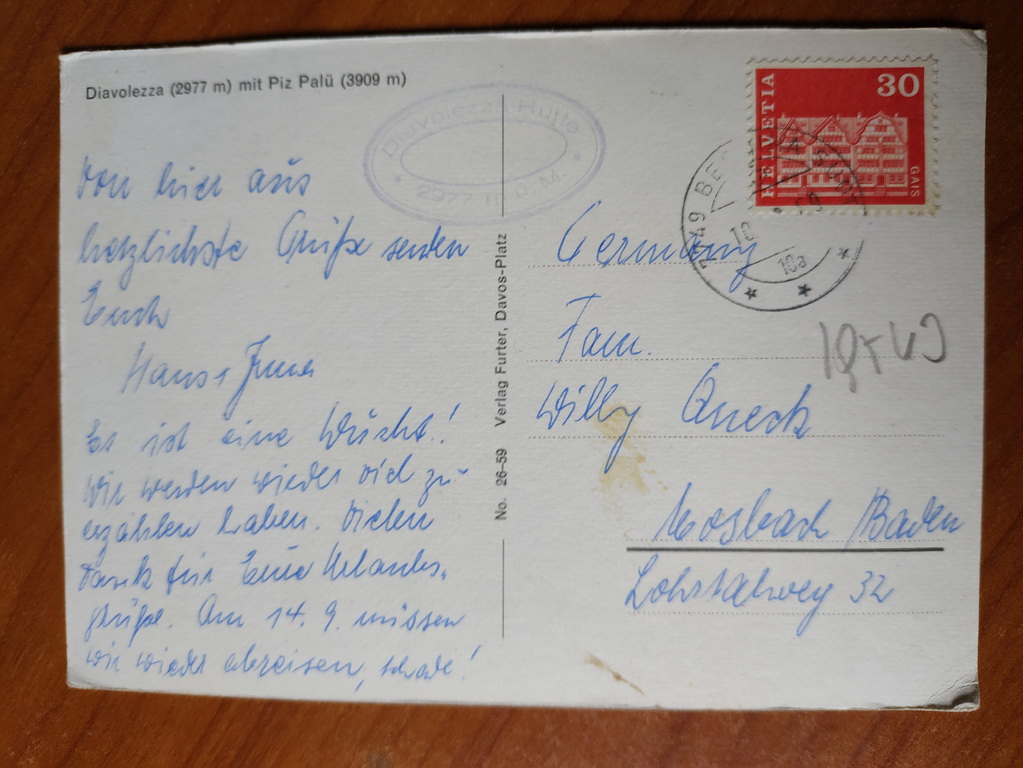 Diavolezza (2977 m) mit Piz Palü (3909 m)
Diavolezza-Hütte
2977 m ü. M.
Von hier aus
herzlichste Grüße senden
Euch
Hans +
Es ist eine Wucht!
Wir werden wieder viel zu
erzählen haben. Vielen
Dank für Eure Urlaubs-
grüße. Am 14. 9. müssen
wir wieder abreisen, schade!
No. 26-59 Verlag Furter, Davos-Platz
HELVETIA
30
GAIS
10a
Germany
Fam.
Willy Queck
Mosbach / Baden
Lohrtalweg 32